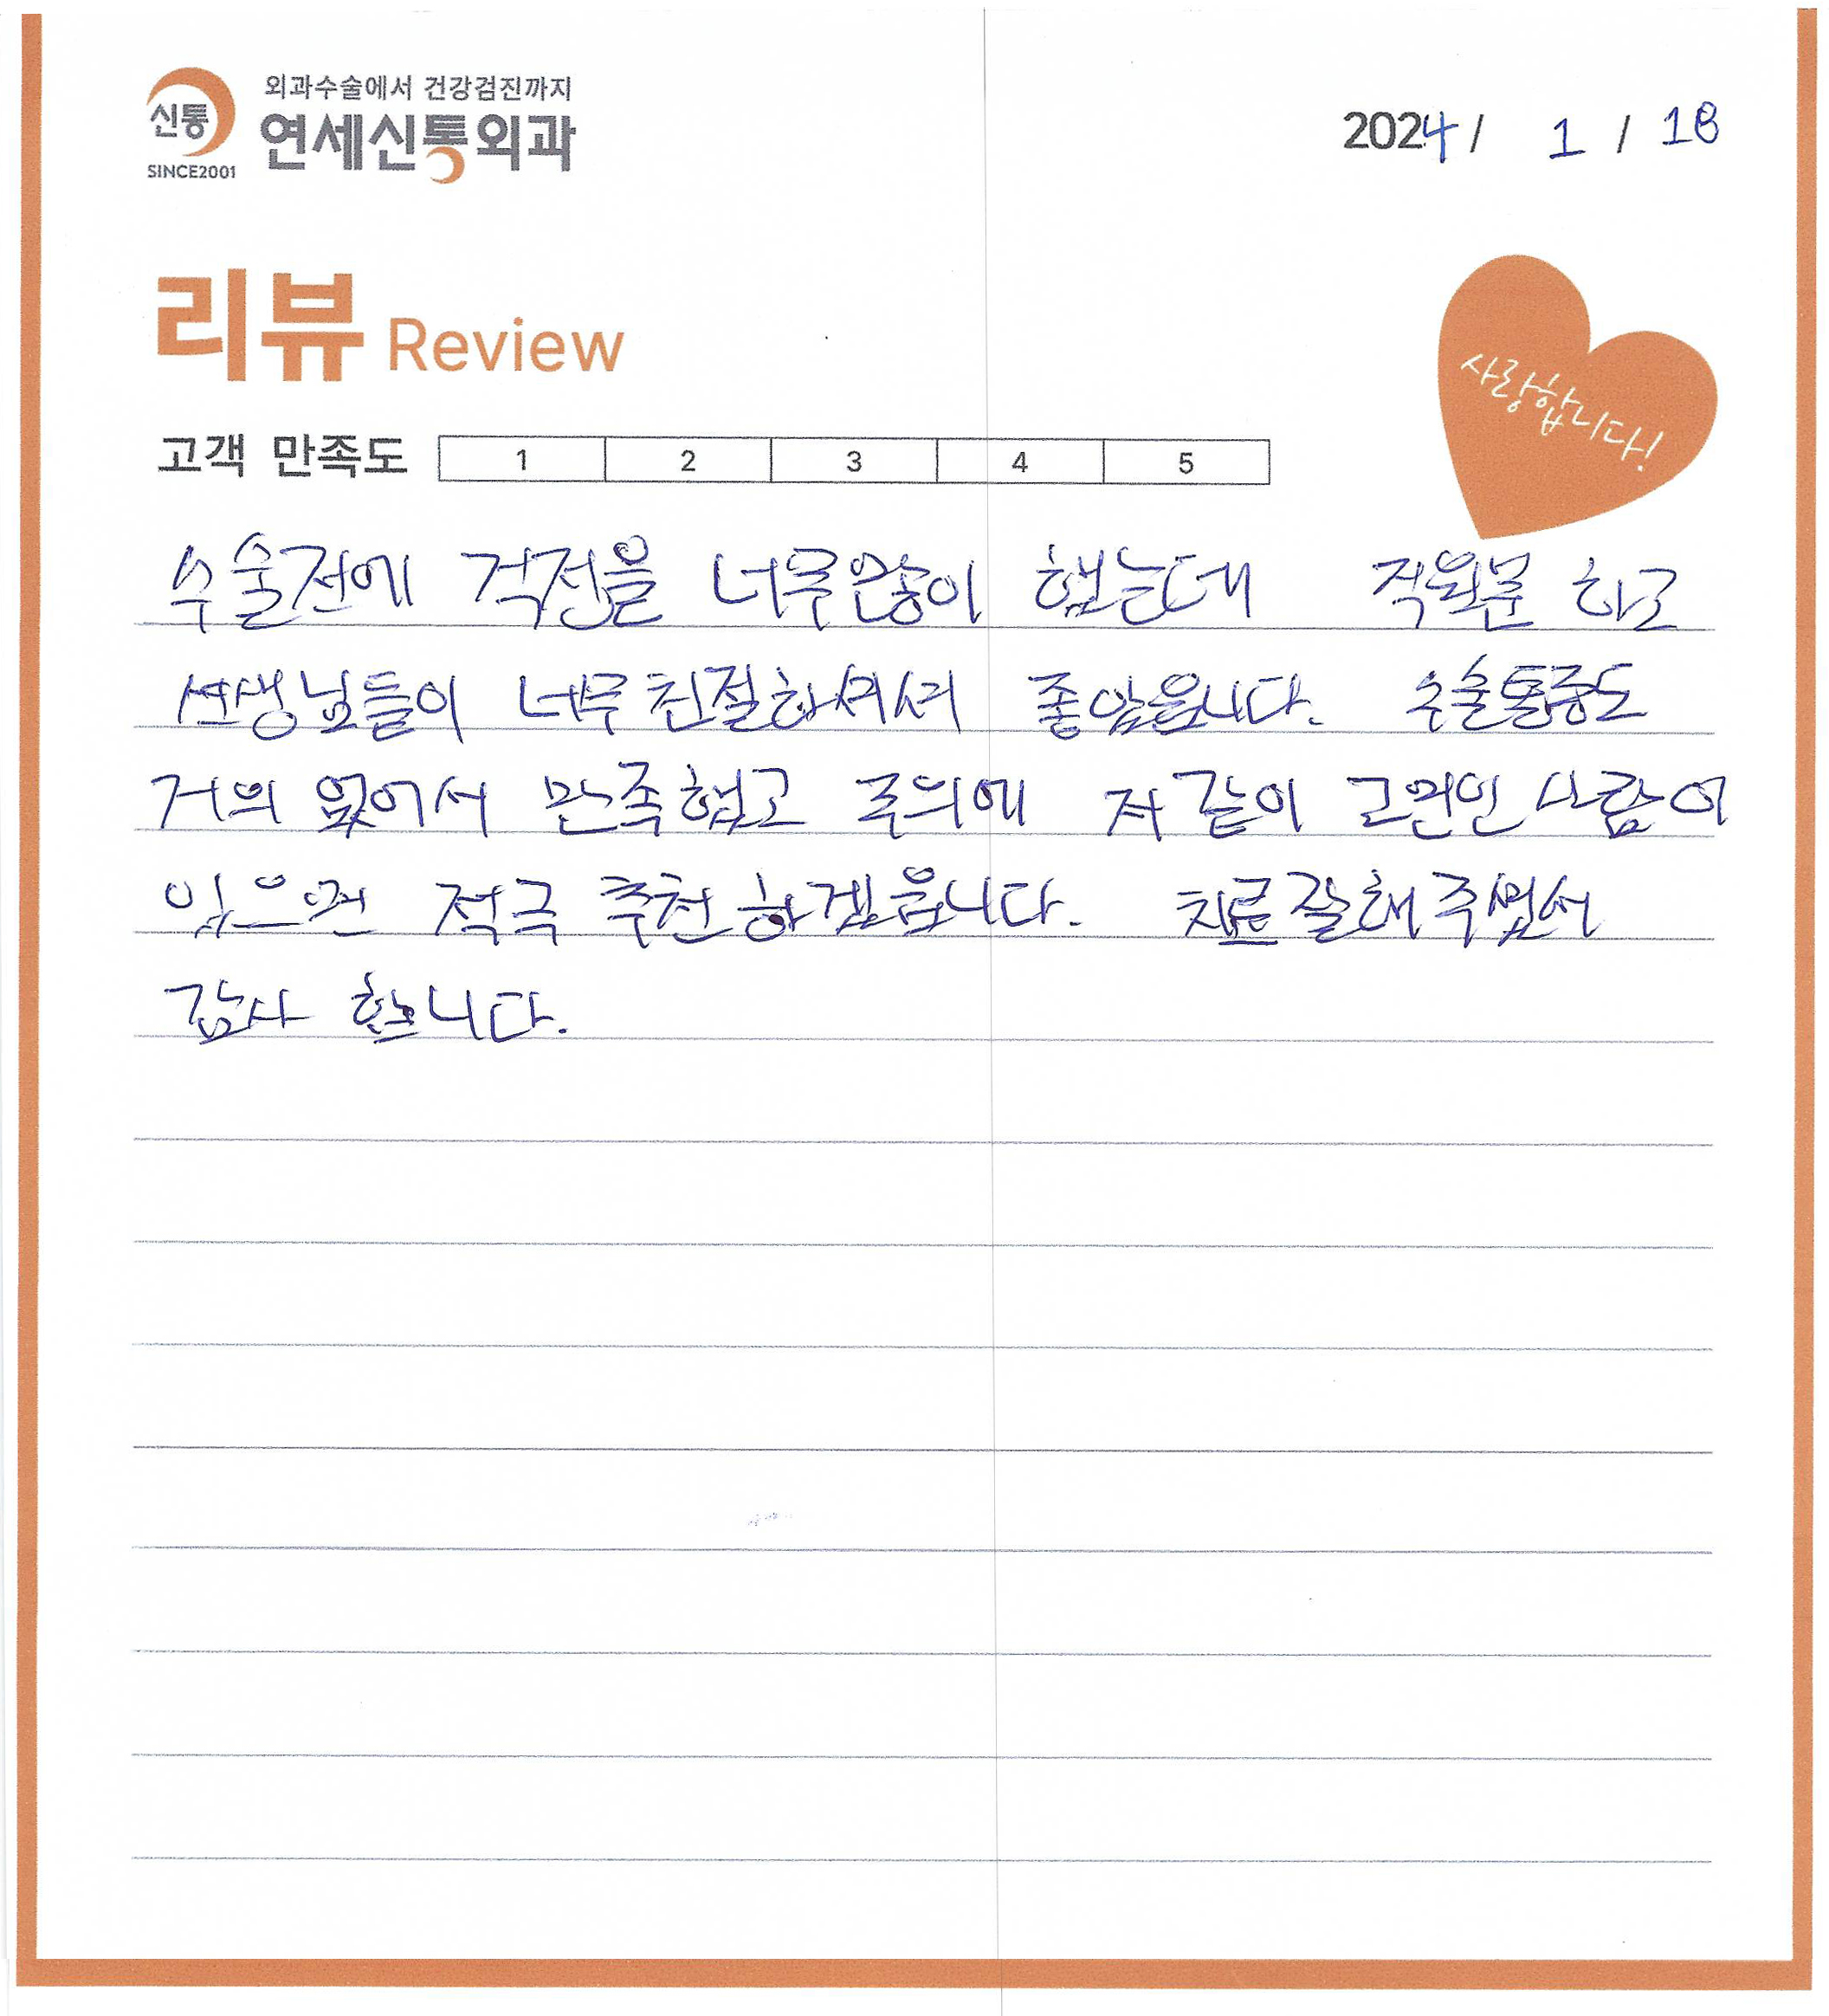 신통
SINCE2001
외과수술에서 건강검진까지
연세신통외과
2024 / 1 / 18
리뷰 Review
사랑합니다!
고객 만족도 1 2 3 4 5
수술전에 걱전을 너무많이 했는데 직원분 하고
선생님들이 너무 친절하셔서 좋았읍니다. 수술통증도
거의 없어서 만족했고 주위에 저 같이 고민인 사람이
있으면 적극 추천 하겠읍니다. 치료 잘해 주셨서
감사 합니다.